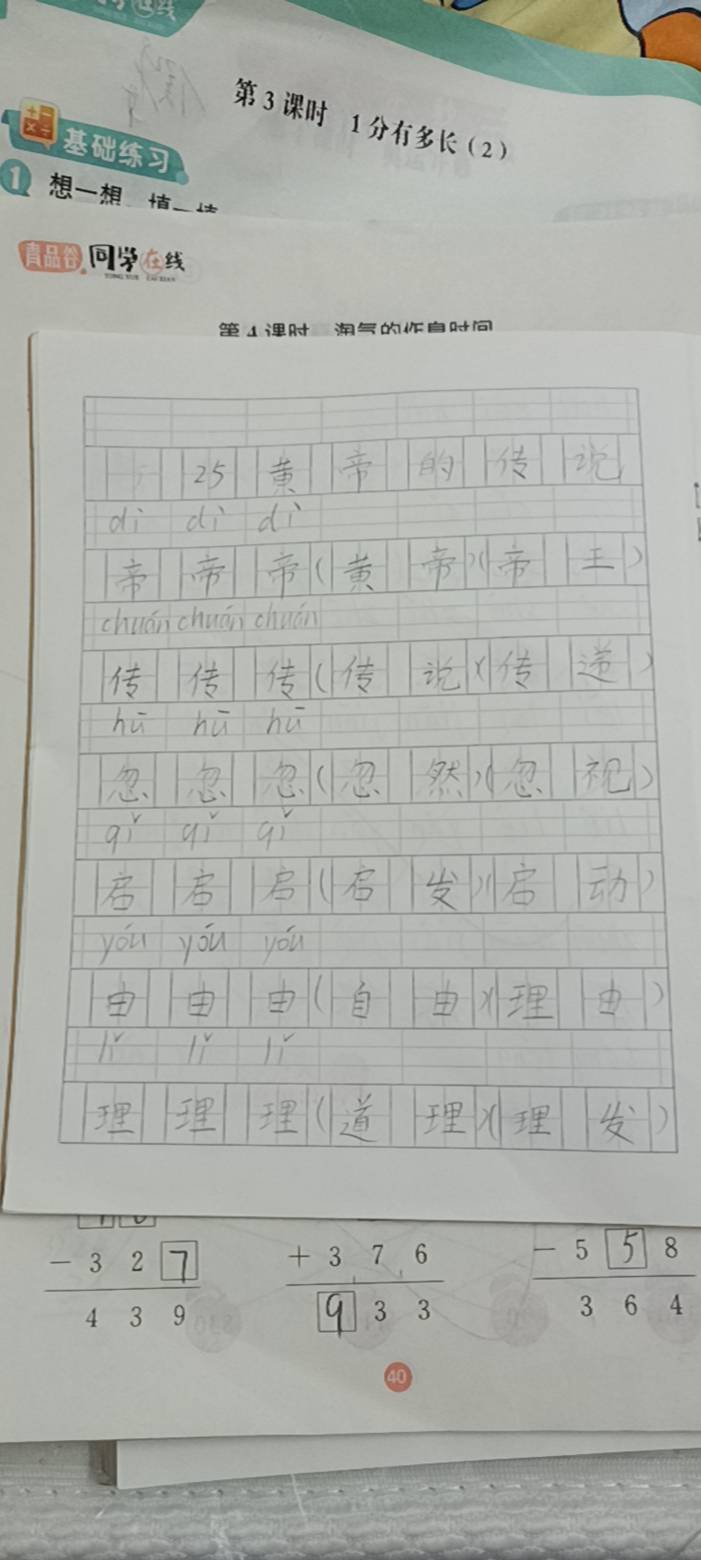 在线
第3课时 1分有多长(2)
基础练习
1 想一想 填一填
青品谷 同学在线
TONG XUE ZAI XIAN
第4课时 淘气的作息时间
25黄帝的传说
dì dì dì
帝帝帝(黄帝)(帝王)
chuán chuán chuán
传传传(传说)(传递)
hū hū hū
忽忽忽(忽然)(忽视)
qǐ qǐ qǐ
启启启(启发)(启动)
yóu yóu yóu
由由由(自由)(理由)
lǐ lǐ lǐ
理理理(道理)(理发)
- 3 2 7 + 3 7 6 - 5 5 8
4 3 9 9 3 3 3 6 4
40